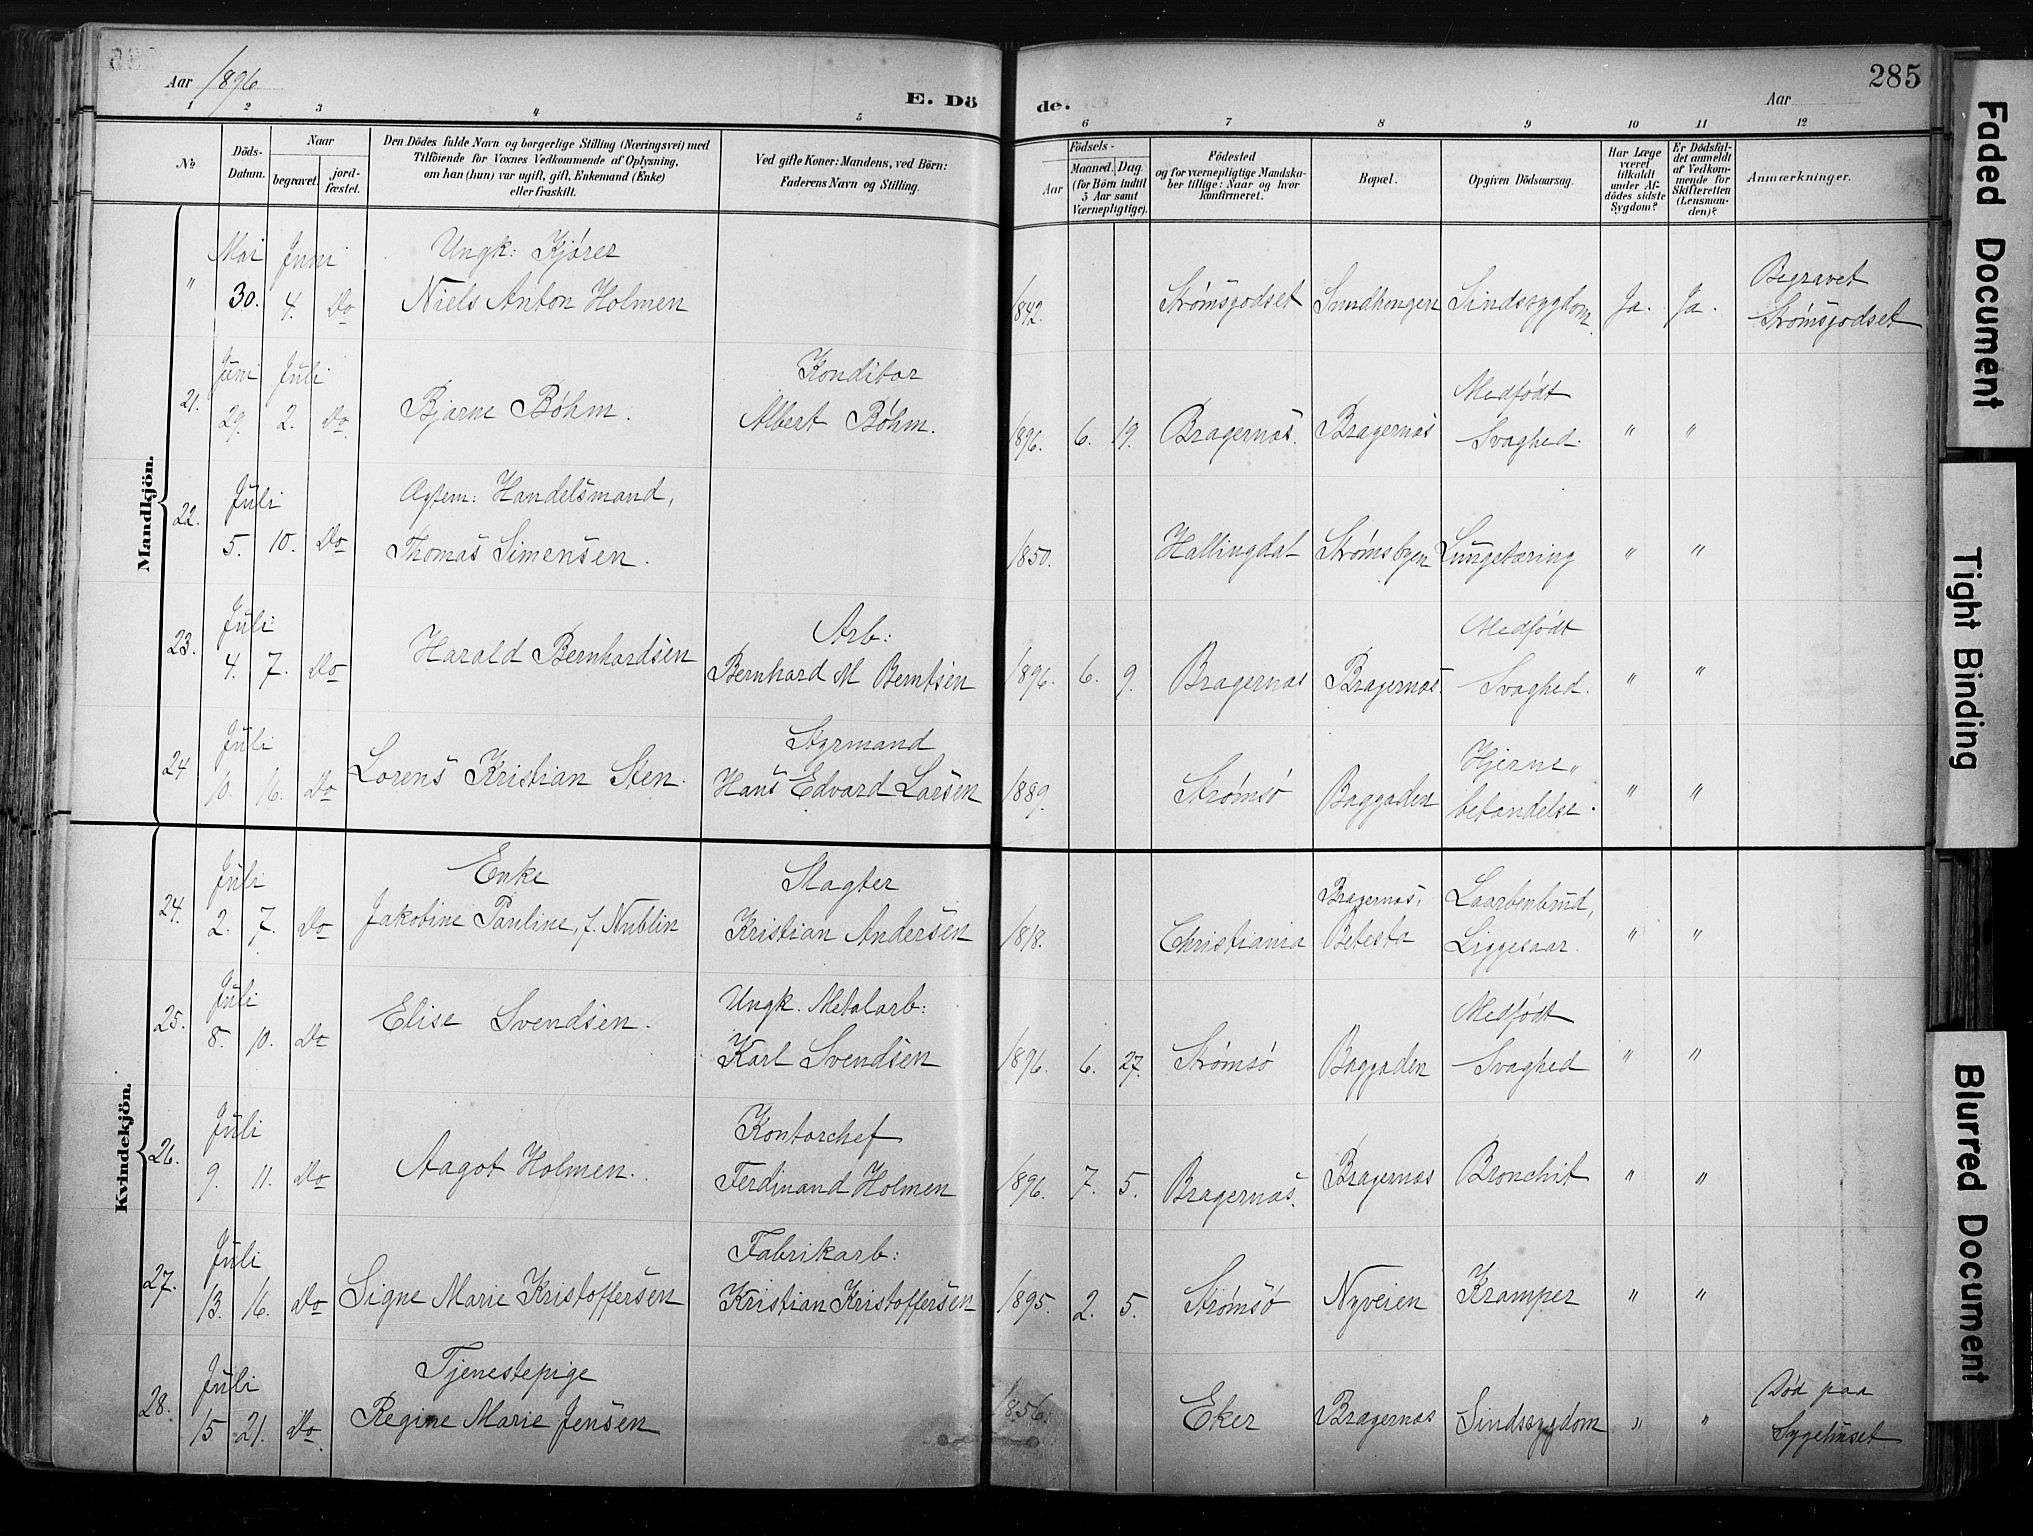 285
Aar 1896
E. Döde.
Aar
1 2 3 4 5 6 7 8 9 10 11 12
No
Döds-Datum.
Naar
begravet.
jord-fæstet.
Den Dödes fulde Navn og borgerlige Stilling (Næringsvei) med
Tilföiende for Voxnes Vedkommende af Oplysning,
om han (hun) var ugift, gift, Enkemand (Enke)
eller fraskilt.
Ved gifte Koner: Mandens, ved Börn:
Faderens Navn og Stilling.
Födsels-
Aar
Maaned.
Dag.
(for Börn indtil
5 Aar samt
Værnepligtige).
Födested
og for værnepligtige Mandska-
ber tillige: Naar og hvor
konfirmeret.
Bopæl.
Opgiven Dödsaarsag.
Har Læge
været
tilkaldt
under Af-
dödes sidste
Sygdom?
Er Dödsfal-
det anmeldt
af Vedkom-
mende for
Skifteretten
(Lensman-
den)?
Anmærkninger.
Mandkjön.
Mai Juni Ungk: Kjører Begravet
" 30. 4. Do Niels Anton Holmen 1842. Strømsgodset Sundhengen Sindssygdom Ja. Ja. Strømsgodset
Juni Juli Konditor Medfødt
21. 29. 2. Do Bjarne Bøhm. Albert Bøhm. 1896. 6. 19. Bragernæs. Bragernæs Svaghed. " "
Juli Agtem: Handelsmand,
22. 5. 10. Do Thomas Simensen. 1850. Hallingdal Strømsbyen Lungetæring " "
Juli Arb: Medfødt
23. 4. 7. Do Harald Bernhardsen Bernhard M Berntsen 1896. 6. 9. Bragernæs Bragernæs. Svaghed. " "
Juli Styrmand Hjerne"
24 10. 16. Do Lorens Kristian Sten. Hans Edvard Larsen 1889. Strømsø Baggaden betændelse. " "
Kvindekjön.
Juli Enke Slagter Bragernæs, Laarbenbrud,
24. 2. 7. Do Jakobine Pauline, f. Nublin Kristian Andersen 1818. Christiania Betesta Liggesaar. " "
Juli Ungk. Metalarb: Medfødt
25. 8. 10. Do Elise Svendsen. Karl Svendsen 1896. 6. 27. Strømsø Baggaden Svaghed " "
Juli Kontorchef
26. 9. 11. Do Aagot Holmen. Ferdinand Holmen 1896. 7. 5. Bragernæs. Bragernæs Bronchit " "
Juli Fabrikarb:
27. 13. 16. Do Signe Marie Kristoffersen Kristian Kristoffersen 1895. 2. 5. Strømsø Nyveien Kramper " "
Juli Tjenestepige Død paa
28. 15 21. Do Regine Marie Jensen 1856. Eker Bragernæs Sindssygdom " " Sygehuset
Faded Document
Tight Binding
Blurred Document